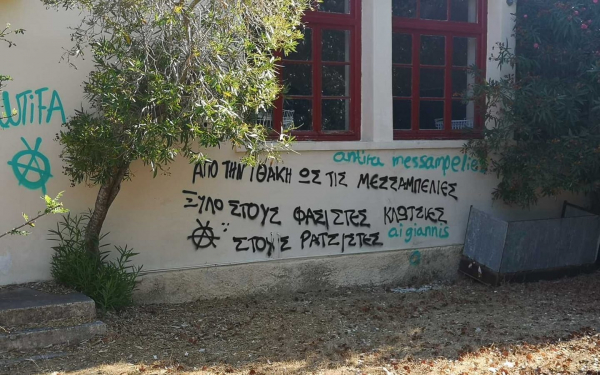 ωτιτα
antifa messampelies
ΑΠΟ ΤΗΝ ΙΘΑΚΗ ΩΣ ΤΙΣ ΜΕΣΣΑΜΠΕΛΙΕΣ
ΞΥΛΟ ΣΤΟΥΣ ΦΑΣΙΣΤΕΣ ΚΛΩΤΣΙΕΣ
ΣΤΟΥΣ ΡΑΤΣΙΣΤΕΣ
ai giannis